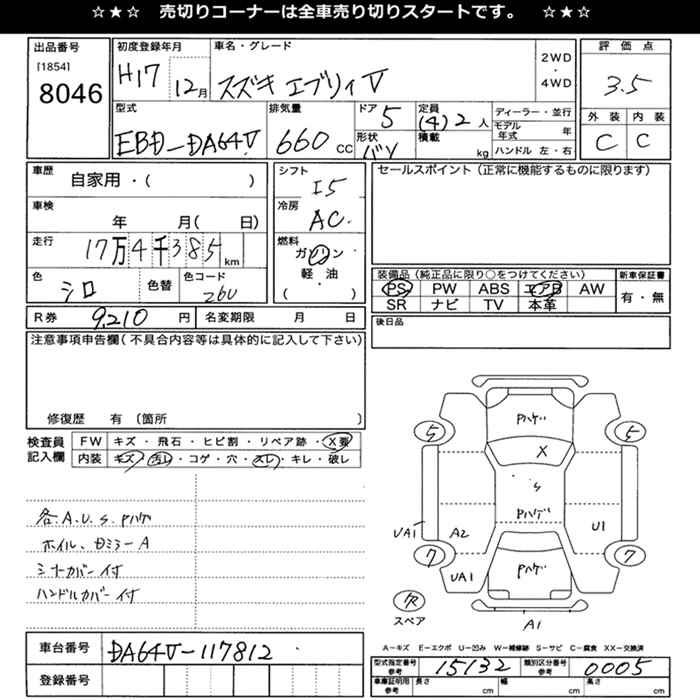 ☆★☆ 売切りコーナーは全車売り切りスタートです。 ☆★☆
出品番号
[1854]
8046
初度登録年月
H17 12月
車名・グレード
スズキ エブリィ V
2WD
・
4WD
評価点
3.5
外装 内装
C C
型式
EBD-DA64V
排気量
660 CC
ドア 5
形状
バン
定員
(4) 2 人
積載
kg
ディーラー・並行
モデル年式 年
ハンドル 左・右
車歴
自家用・( )
車検
年 月( 日)
走行
17万4千385 km
色
シロ
色替
色コード
26U
シフト
I5
冷房
AC
燃料
ガソリン
軽・油
( )
セールスポイント(正常に機能するものに限ります)
装備品(純正品に限り○をつけてください)
PS PW ABS エアB AW
SR ナビ TV 本革
新車保証書
有・無
R券 9,210 円
名変期限 月 日
後日品
注意事項申告欄(不具合内容等は具体的に記入して下さい)
修復歴 有 〔箇所 〕
検査員
記入欄
FW キズ・飛石・ヒビ割・リペア跡・X要
内装 キズ・汚レ・コゲ・穴・スレ・キレ・破レ
各A.U.S.Pハゲ
ホイル、ドミラーA
シートカバー付
ハンドルカバー付
Pハゲ
5 5
X
S
Pハゲ
UA1 A2 U1
7 7
UA1 Pハゲ
スペア
A1
A-キズ E-エクボ U-凹み W-補修跡 S-サビ C-腐食 XX-交換済
車台番号 DA64V-117812
登録番号
型式指定番号
参考
15132
類別区分番号
参考
0005
車庫証明用
参考
長さ cm 幅 cm 高さ cm